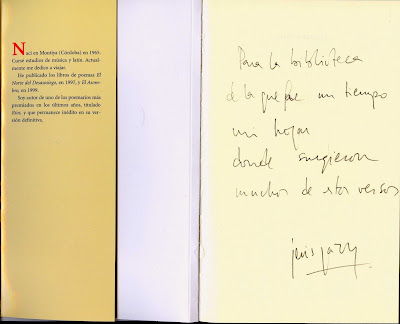 Nací en Montiya (Córdoba) en 1965.
Cursé estudios de música y latín. Actual-
mente me dedico a viajar.
He publicado los libros de poemas El
Norte del Desasosiego, en 1997, y El
en 1999.
Soy autor de uno de los poemarios más
premiados en los últimos años, titulado
Ibros, y que permanece inédito en su ver-
sión definitiva.
Para la biblioteca
de la que fue un tiempo
mi hogar
donde surgieron
muchos de estos versos